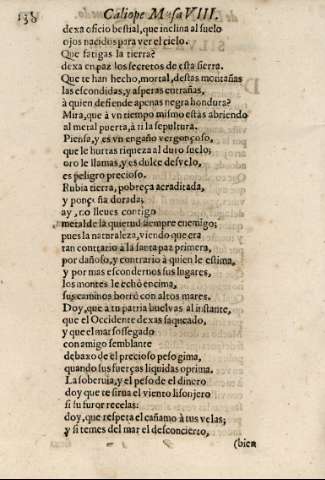 138 Caliope Musa VIII.
dexa oficio bestial, que inclina al suelo
ojos nacidos para ver el cielo.
Que fatigas la tierra?
dexa en paz los secretos de esta sierra.
Que te han hecho, mortal, destas montañas
las escondidas, y asperas entrañas,
à quien defiende apenas negra hondura?
Mira, que à vn tiempo mismo estás abriendo
al metal puerta, à ti la sepultura.
Piensa, y es vn engaño vergonçoso,
que le hurtas riqueza al duro suelo;
oro le llamas, y es dulce desvelo,
es peligro precioso.
Rubia tierra, pobreça acraditada,
y ponçoña dorada;
ay, no lleues contigo
metal de la quietud siempre enemigo;
pues la naturaleza, viendo que era
tan contrario à la santa paz primera,
por dañoso, y contrario à quien le estima,
y por mas escondernos sus lugares,
los montes le echò encima,
sus caminos borrò con altos mares.
Doy, que a tu patria buelvas al instante,
que el Occidente dexas saqueado,
y que el mar sossegado
con amigo semblante
debaxo de el precioso peso gima,
quando sus fuerças liquidas oprima.
La soberuia, y el peso de el dinero
doy que te sirua el viento lisonjero
si su furor recelas:
doy, que respeta el cañamo à tus velas;
y si temes del mar el desconcierto,
(bien